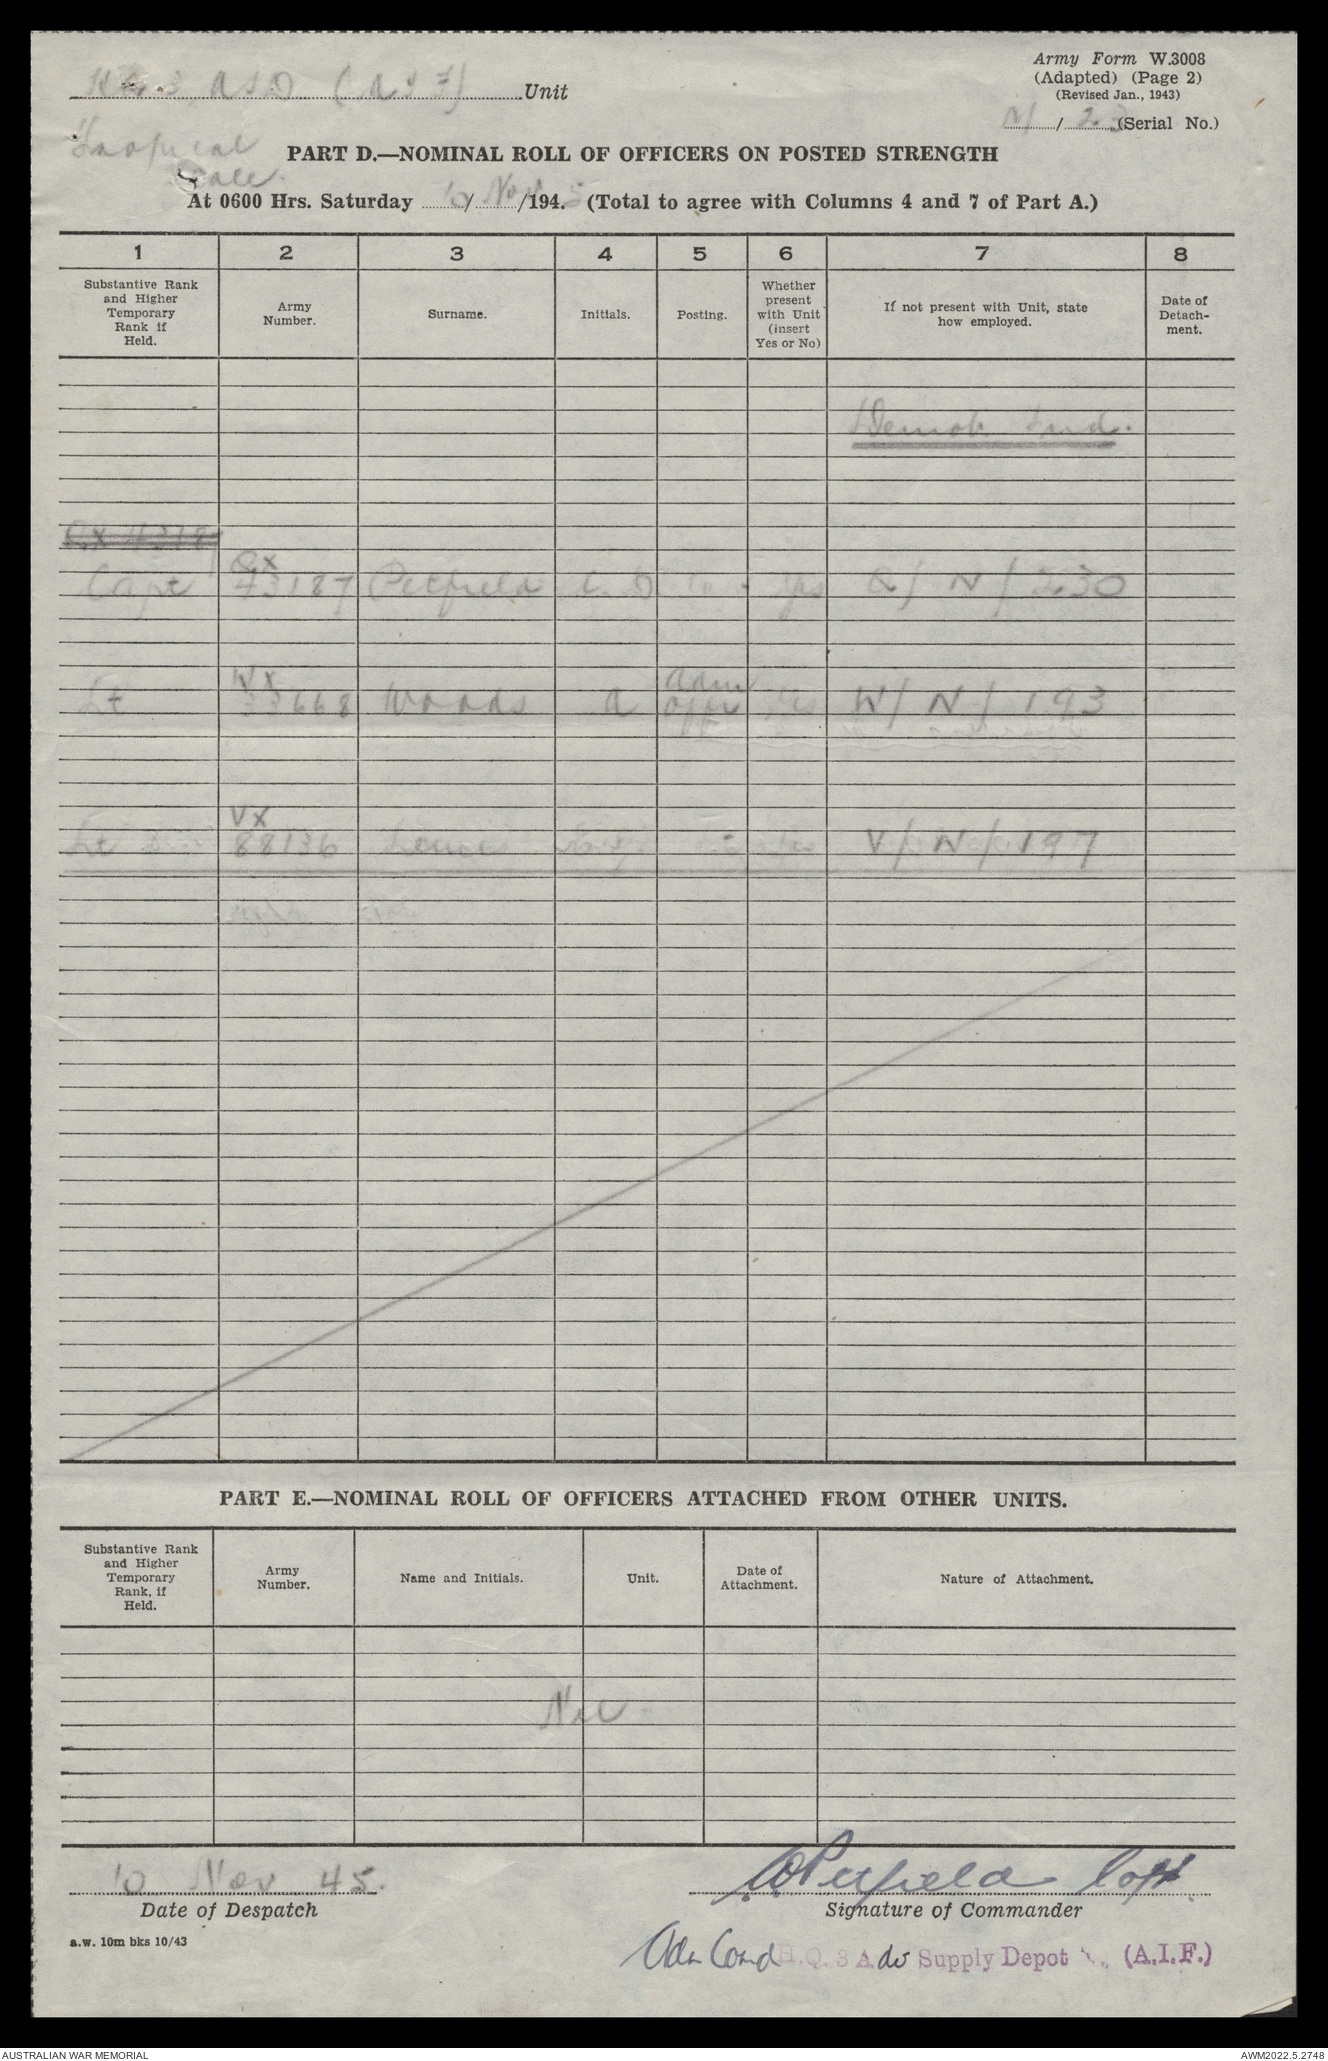 HQ 3 ASD (AIF) Unit
Army Form W.3008
(Adapted) (Page 2)
(Revised Jan., 1943)
N / 23 (Serial No.)
Tropical
Scale.
PART D.—NOMINAL ROLL OF OFFICERS ON POSTED STRENGTH
At 0600 Hrs. Saturday 10/Nov/1945. (Total to agree with Columns 4 and 7 of Part A.)
1 2 3 4 5 6 7 8
Substantive Rank and Higher Temporary Rank if Held.
Army Number.
Surname.
Initials.
Posting.
Whether present with Unit (insert Yes or No)
If not present with Unit, state how employed.
Date of Detach-ment.
Demob Ind.
QX 43187
Capt QX 43187 Petfield C. D Yes Q/ N / 230
Lt WX 33668 Woods A Adm Offr Yes W/ N / 193
Lt VX 88136 V/ N / 197
PART E.—NOMINAL ROLL OF OFFICERS ATTACHED FROM OTHER UNITS.
Substantive Rank and Higher Temporary Rank, if Held.
Army Number.
Name and Initials.
Unit.
Date of Attachment.
Nature of Attachment.
Nil
10 Nov 45.
Date of Despatch
Petfield Capt.
Signature of Commander
a.w. 10m bks 10/43
Adm Comd H.Q. 3 A Supply Depot (A.I.F.)
AUSTRALIAN WAR MEMORIAL
AWM2022.5.2748